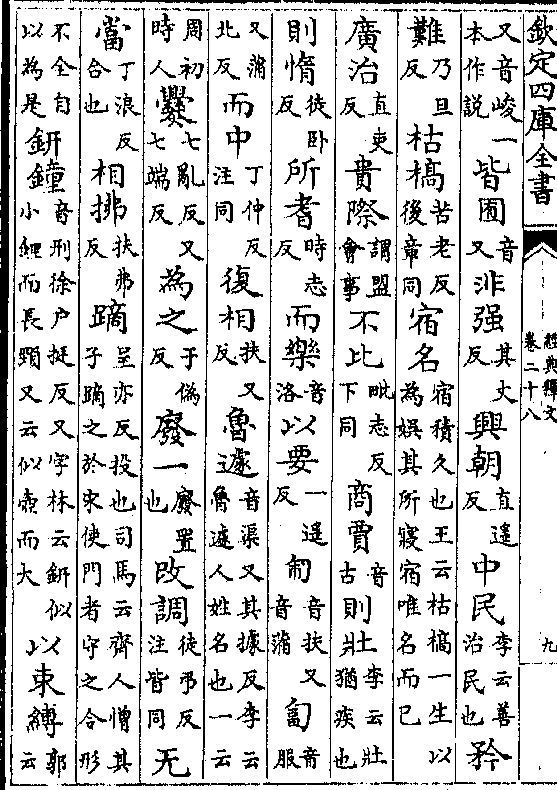 欽定四庫全書
經典釋文
卷二十八
九
又音峻一本作説皆囿音又非强其丈反興朝直遥反中民李云善治民也矜
難乃旦反枯槁苦老反後章同宿名宿積久也王云枯槁一生以為娯其所寢宿唯名而已
廣治直吏反貴際謂盟會事不比毗志反下同商賈音古則壯李云壯猶疾也
則惰徒卧反所耆時志反而樂音洛以要一遥反匍音扶又音蒲匐音服
又蒲北反而中丁仲反注同復相扶又反魯遽音渠又其據反李云魯遽人姓名也一云
周初時人爨七亂反又七端反為之于偽反廢一廢置也改調徒弔反注皆同无
當丁浪反合也相拂扶弗反蹢呈亦反投也司馬云齊人憎其子蹢之於宋使門者守之合形
不全自以為是鈃鐘音刑徐户挺反又字林云鈃似小鍾而長頸又云似壺而大以束縛郭云